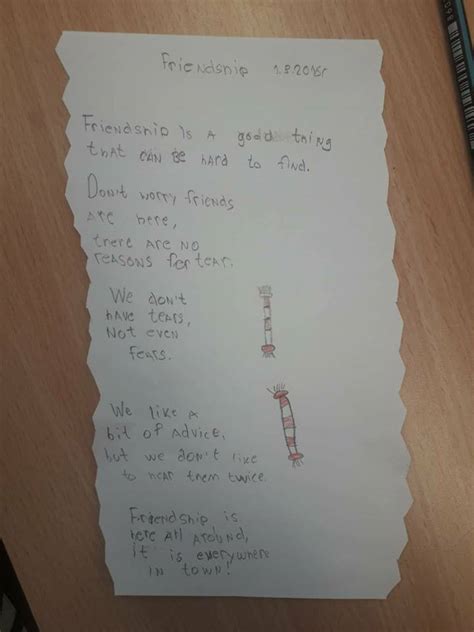 Friendship 1.8.2016r
Friendship is a good thing
that can be hard to find.
Don't worry friends
are here,
there are no
reasons for tear.
We don't
have tears,
Not even
fears.
We like a
bit of advice,
but we don't like
to hear them twice
Friendship is
here all around,
it is everywhere
in town!